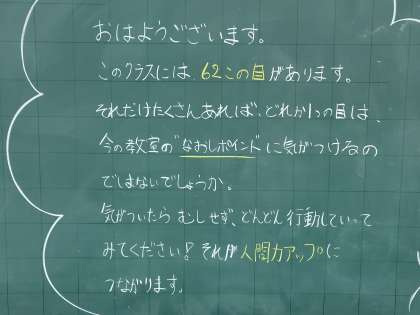 おはようございます。
このクラスには 62この目があります。
それだけたくさんあれば、どれか1つの目は、
今の教室の"なおしポイント"に気がつけるの
ではないでしょうか。
気がついたら むしせず、どんどん行動していって
みてください！それが人間力アップに
つながります。